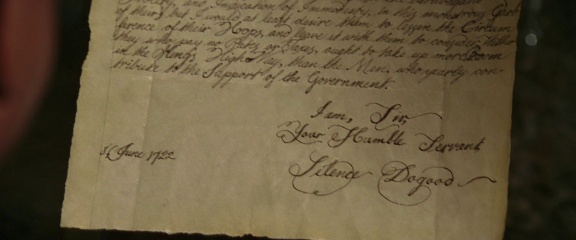 and Indication of Immodesty, in this monstrous
of theirs; but I would at least desire them to lessen the Circum
ference of their Hoops, and leave it with them to consider, Whether
they who pay no Rates or Taxes, ought to take up more Room
in the King's High Way, than the Men, who yearly con-
tribute to the Support of the Government.
I am, Sir,
Your Humble Servant
June 1722
Silence Dogood